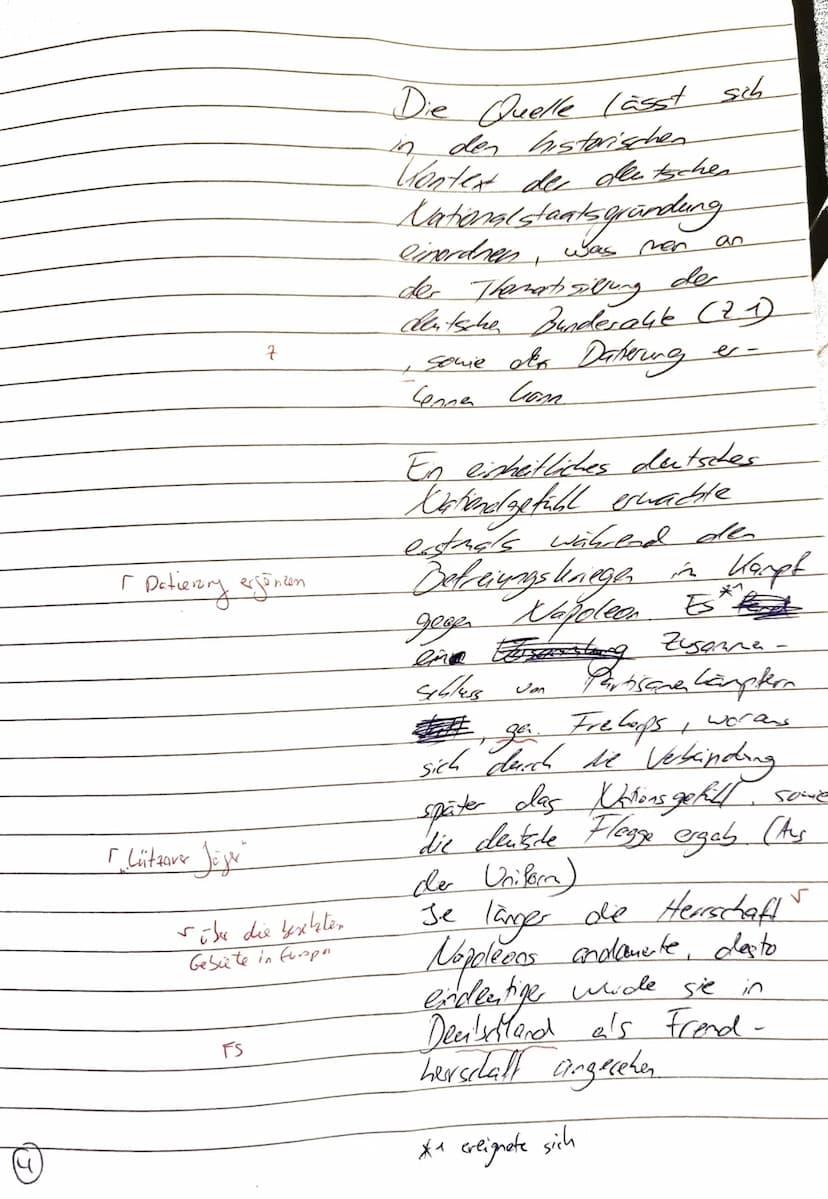 Die Quelle lässt sich
in den historischen
Kontext der deutschen
Nationalstaatsgründung
einordnen, was man an
der Thematisierung der
deutsche Bundesakte (Z 1)
7
, sowie der Datierung er-
kennen kann
Ein einheitliches deutsches
Nationalgefühl erwachte
erstmals während den
Γ Datierung ergänzen
Befreiungskriegen im Kampf
gegen Napoleon. Es *1
ein Zusammen-
schluss von Partisanenkämpfern
, gen. Freikorps, woraus
sich durch die Verbindung
später das Nationsgefühl, sowie
die deutsche Flagge ergab. (Aus
Γ „Lützower Jäger"
der Uniform)
Je länger die Herrschaft √
√ über die besetzten
Gebiete in Europa
Napoleons andauerte, desto
eindeutiger wurde sie in
FS
Deutschland als Fremd-
herrschaft angesehen
*1 ereignete sich
4